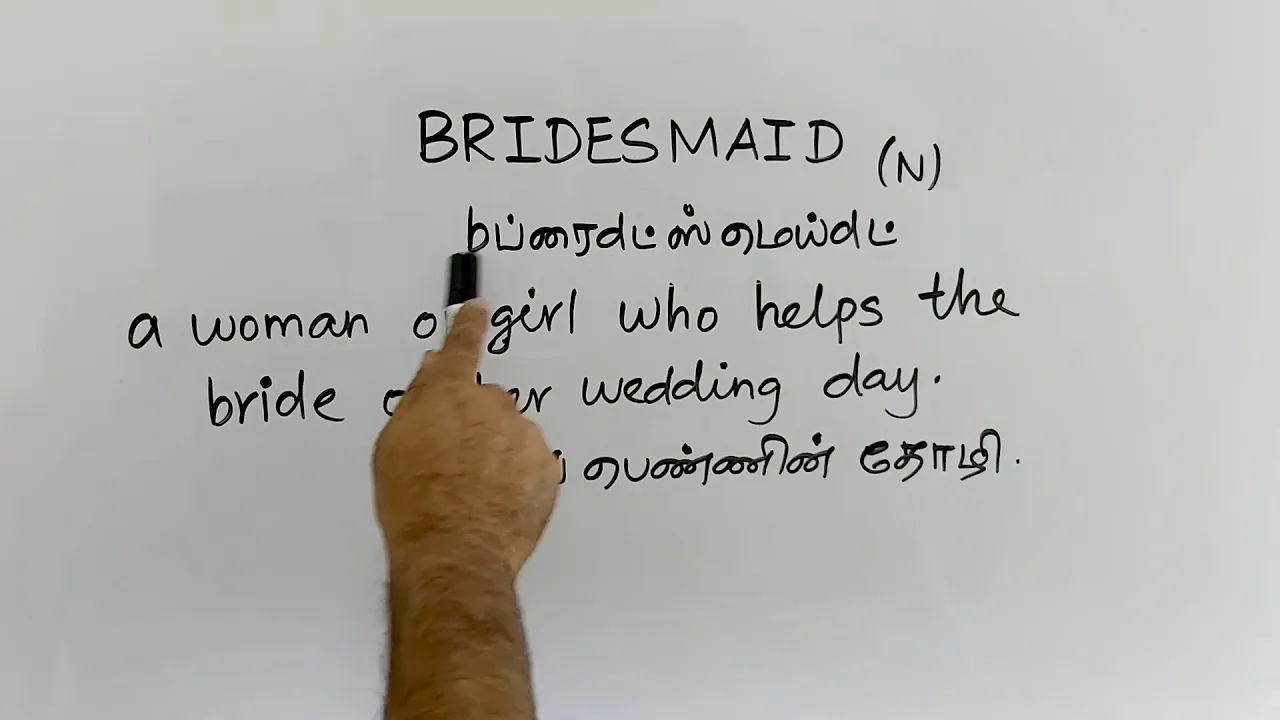 BRIDESMAID (N)
bப்ரைdட்ஸ்மெய்dட்
a woman girl who helps the
bride wedding day.
பெண்ணின் தோழி.